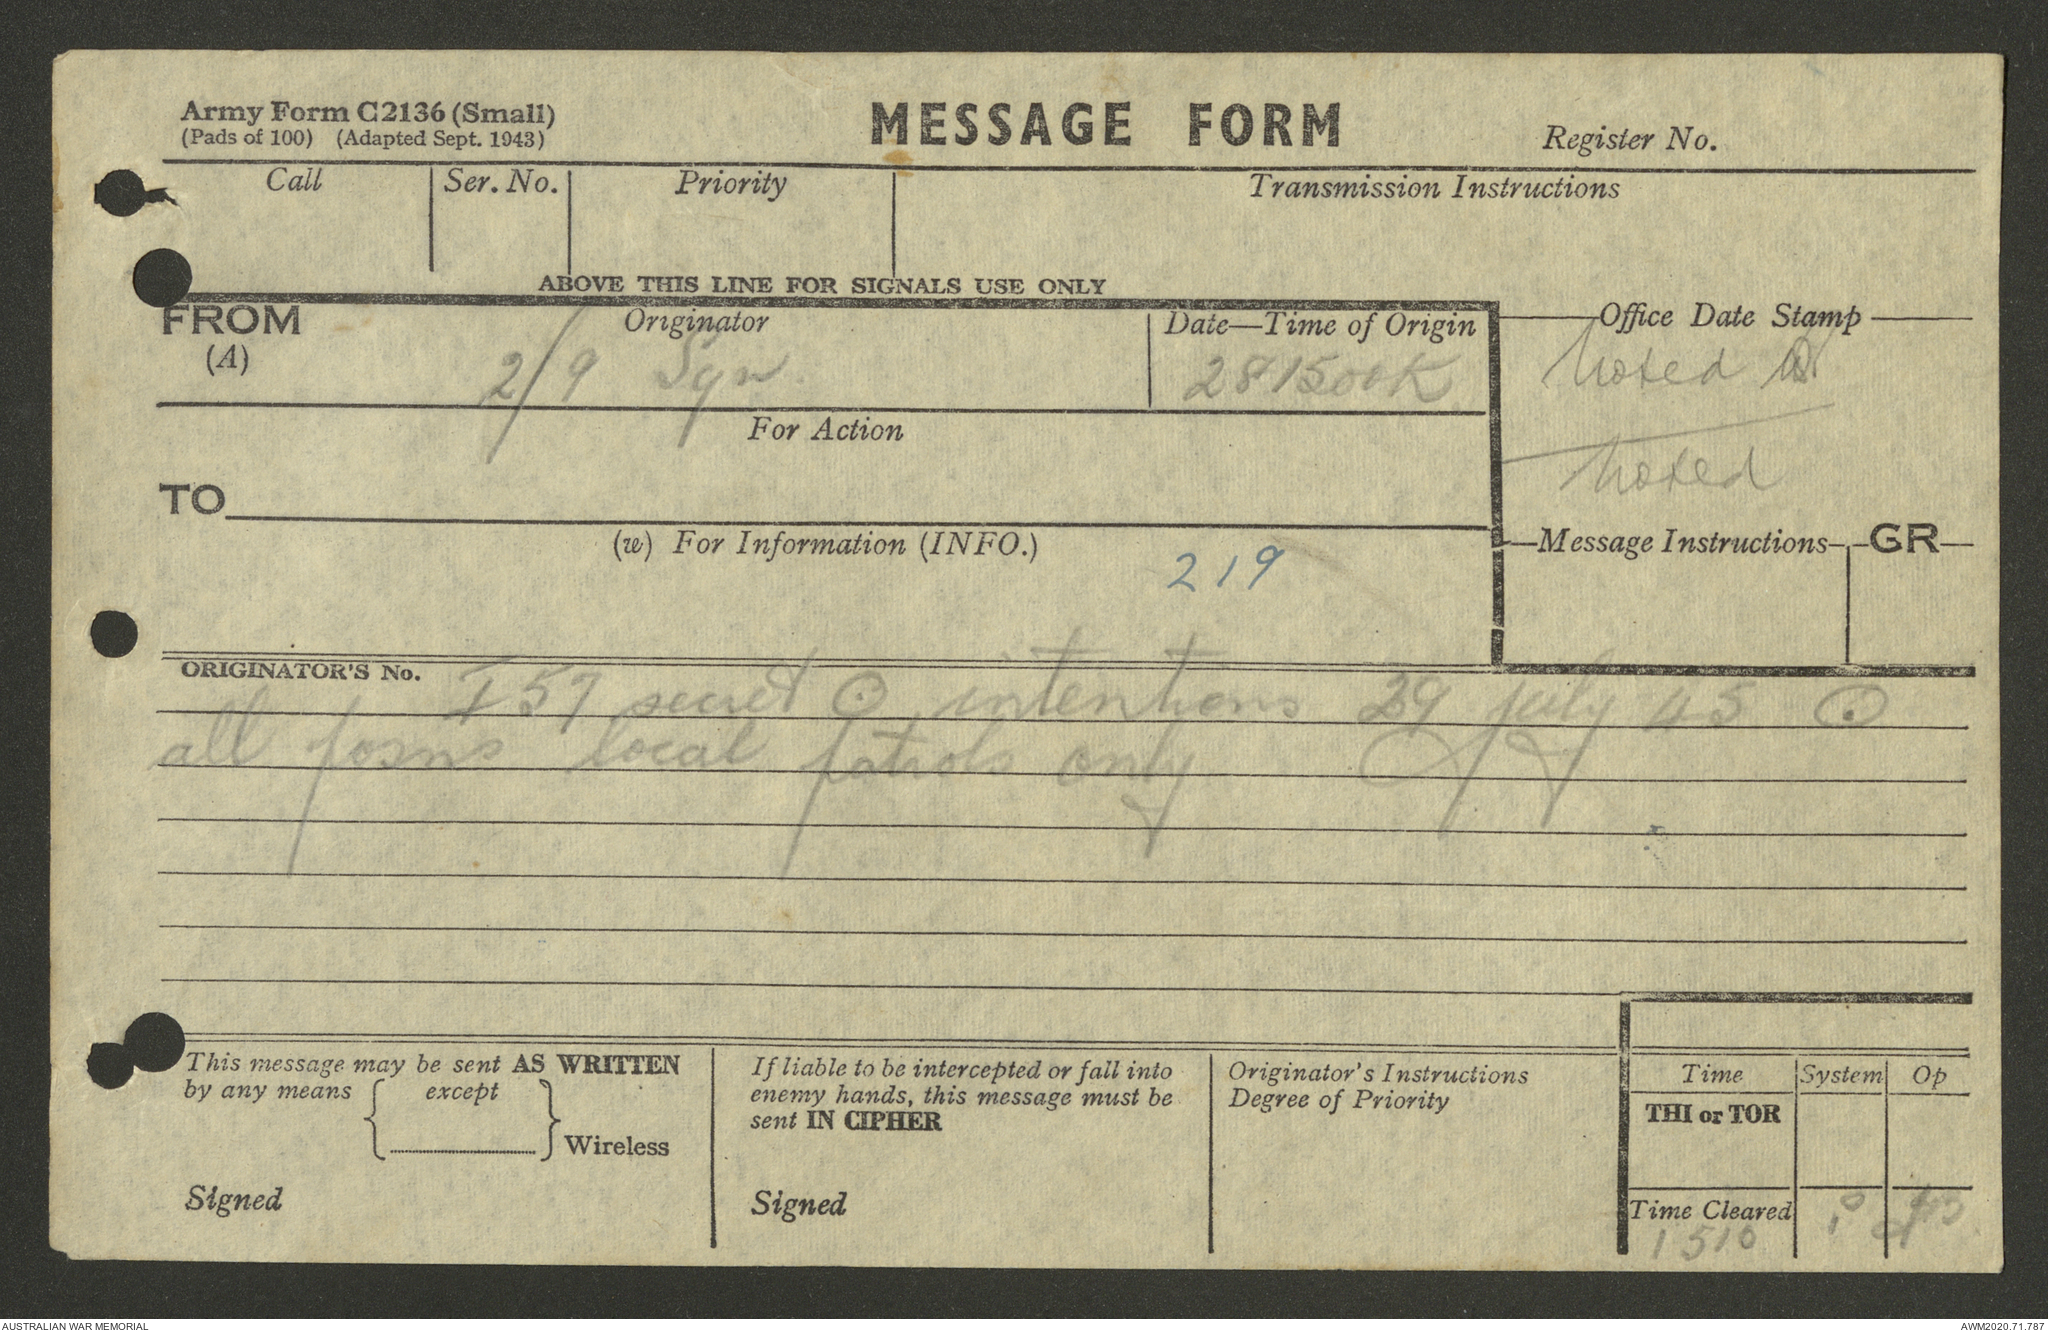 Army Form C2136 (Small)
(Pads of 100) (Adapted Sept. 1943)
MESSAGE FORM
Register No.
Call
Ser. No.
Priority
Transmission Instructions
ABOVE THIS LINE FOR SIGNALS USE ONLY
FROM
(A)
Originator
2/9 Sqn
Date—Time of Origin
281500K
Office Date Stamp
Noted
Noted
For Action
TO
(w) For Information (INFO.)
219
Message Instructions
GR
ORIGINATOR'S No.
I 57 secret ⊙ intentions 29 July 45 ⊙
all posns local patrols only
This message may be sent AS WRITTEN
by any means { except } Wireless
Signed
If liable to be intercepted or fall into
enemy hands, this message must be
sent IN CIPHER
Signed
Originator's Instructions
Degree of Priority
Time
System
Op
THI or TOR
Time Cleared
1510
AUSTRALIAN WAR MEMORIAL
AWM2020.71.787